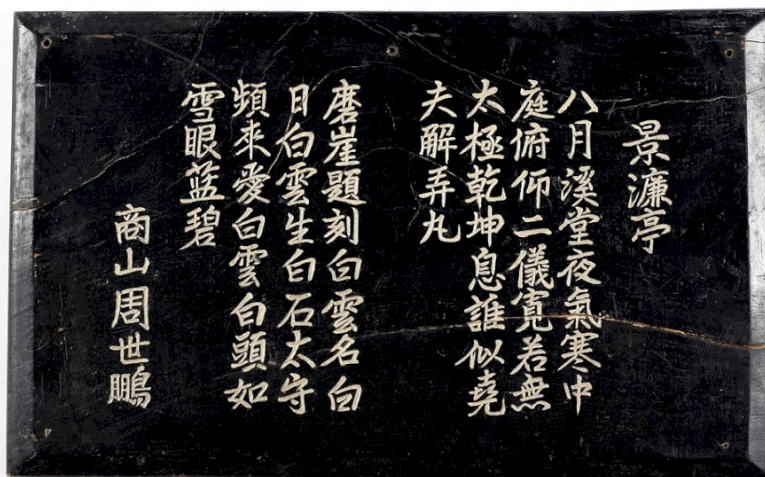 景濂亭
八月溪堂夜氣寒中
庭俯仰二儀寬若無
太極乾坤息誰似堯
夫解弄丸
磨崖題刻白雲名白
日白雲生白石太守
頻來愛白雲白頭如
雪眼藍碧
商山周世鵬